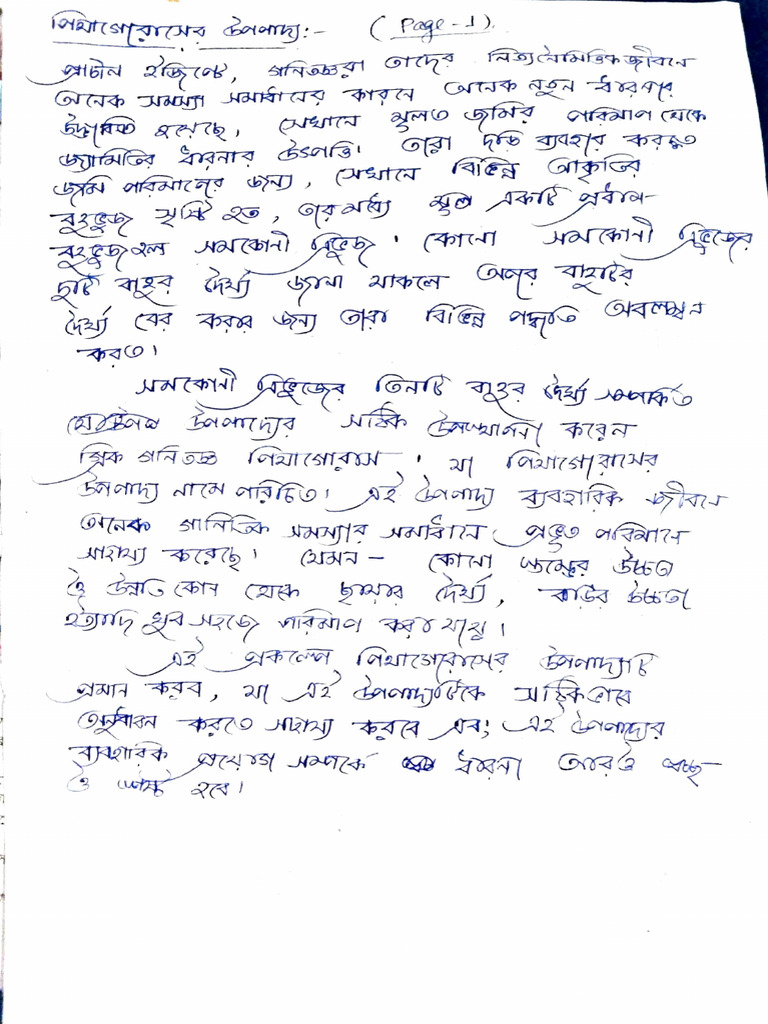 পিথাগোরাসের উপপাদ্য:- (Page-1).
প্রাচীন ইজিপ্টে, গনিতজ্ঞরা তাদের নিত্যনৈমিত্তিক জীবনে
অনেক সমস্যা সমাধানের কারনে অনেক নতুন ধারণার
উদ্ভাবিত হয়েছে, সেখানে মূলত জমির পরিমাপ থেকে
জ্যামিতির ধারনার উৎপত্তি। তারা দড়ি ব্যবহার করত
জমি পরিমাপের জন্য, সেখানে বিভিন্ন আকৃতির
বহুভুজ সৃষ্টি হত, তার মধ্যে মূল একটি প্রধান
বহুভুজ হল সমকোনী ত্রিভুজ। কোনো সমকোনী ত্রিভুজের
দুটি বাহুর দৈর্ঘ্য জানা থাকলে অপর বাহুটির
দৈর্ঘ্য বের করার জন্য তারা বিভিন্ন পদ্ধতি অবলম্বন
করত।
সমকোনী ত্রিভুজের তিনটি বাহুর দৈর্ঘ্য সম্পর্কিত
উপপাদ্যের সঠিক উপস্থাপনা করেন
গ্রিক গনিতজ্ঞ পিথাগোরাস। যা পিথাগোরাসের
উপপাদ্য নামে পরিচিত। এই উপপাদ্য ব্যবহারিক জীবনে
অনেক গানিতিক সমস্যার সমাধানে প্রভূত পরিমানে
সাহায্য করেছে। যেমন - কোনো স্তম্ভের উচ্চতা
ও উন্নতি কোন থেকে ছায়ার দৈর্ঘ্য, বাড়ির উচ্চতা
ইত্যাদি খুব সহজে পরিমাপ করা যায়।
এই প্রকল্পে পিথাগোরাসের উপপাদ্যটি
প্রমান করব, যা এই উপপাদ্যটিকে সঠিকভাবে
অনুধাবন করতে সাহায্য করবে এবং এই উপপাদ্যের
ব্যবহারিক প্রয়োগ সম্পর্কে ধারনা আরও স্বচ্ছ
ও স্পষ্ট হবে।